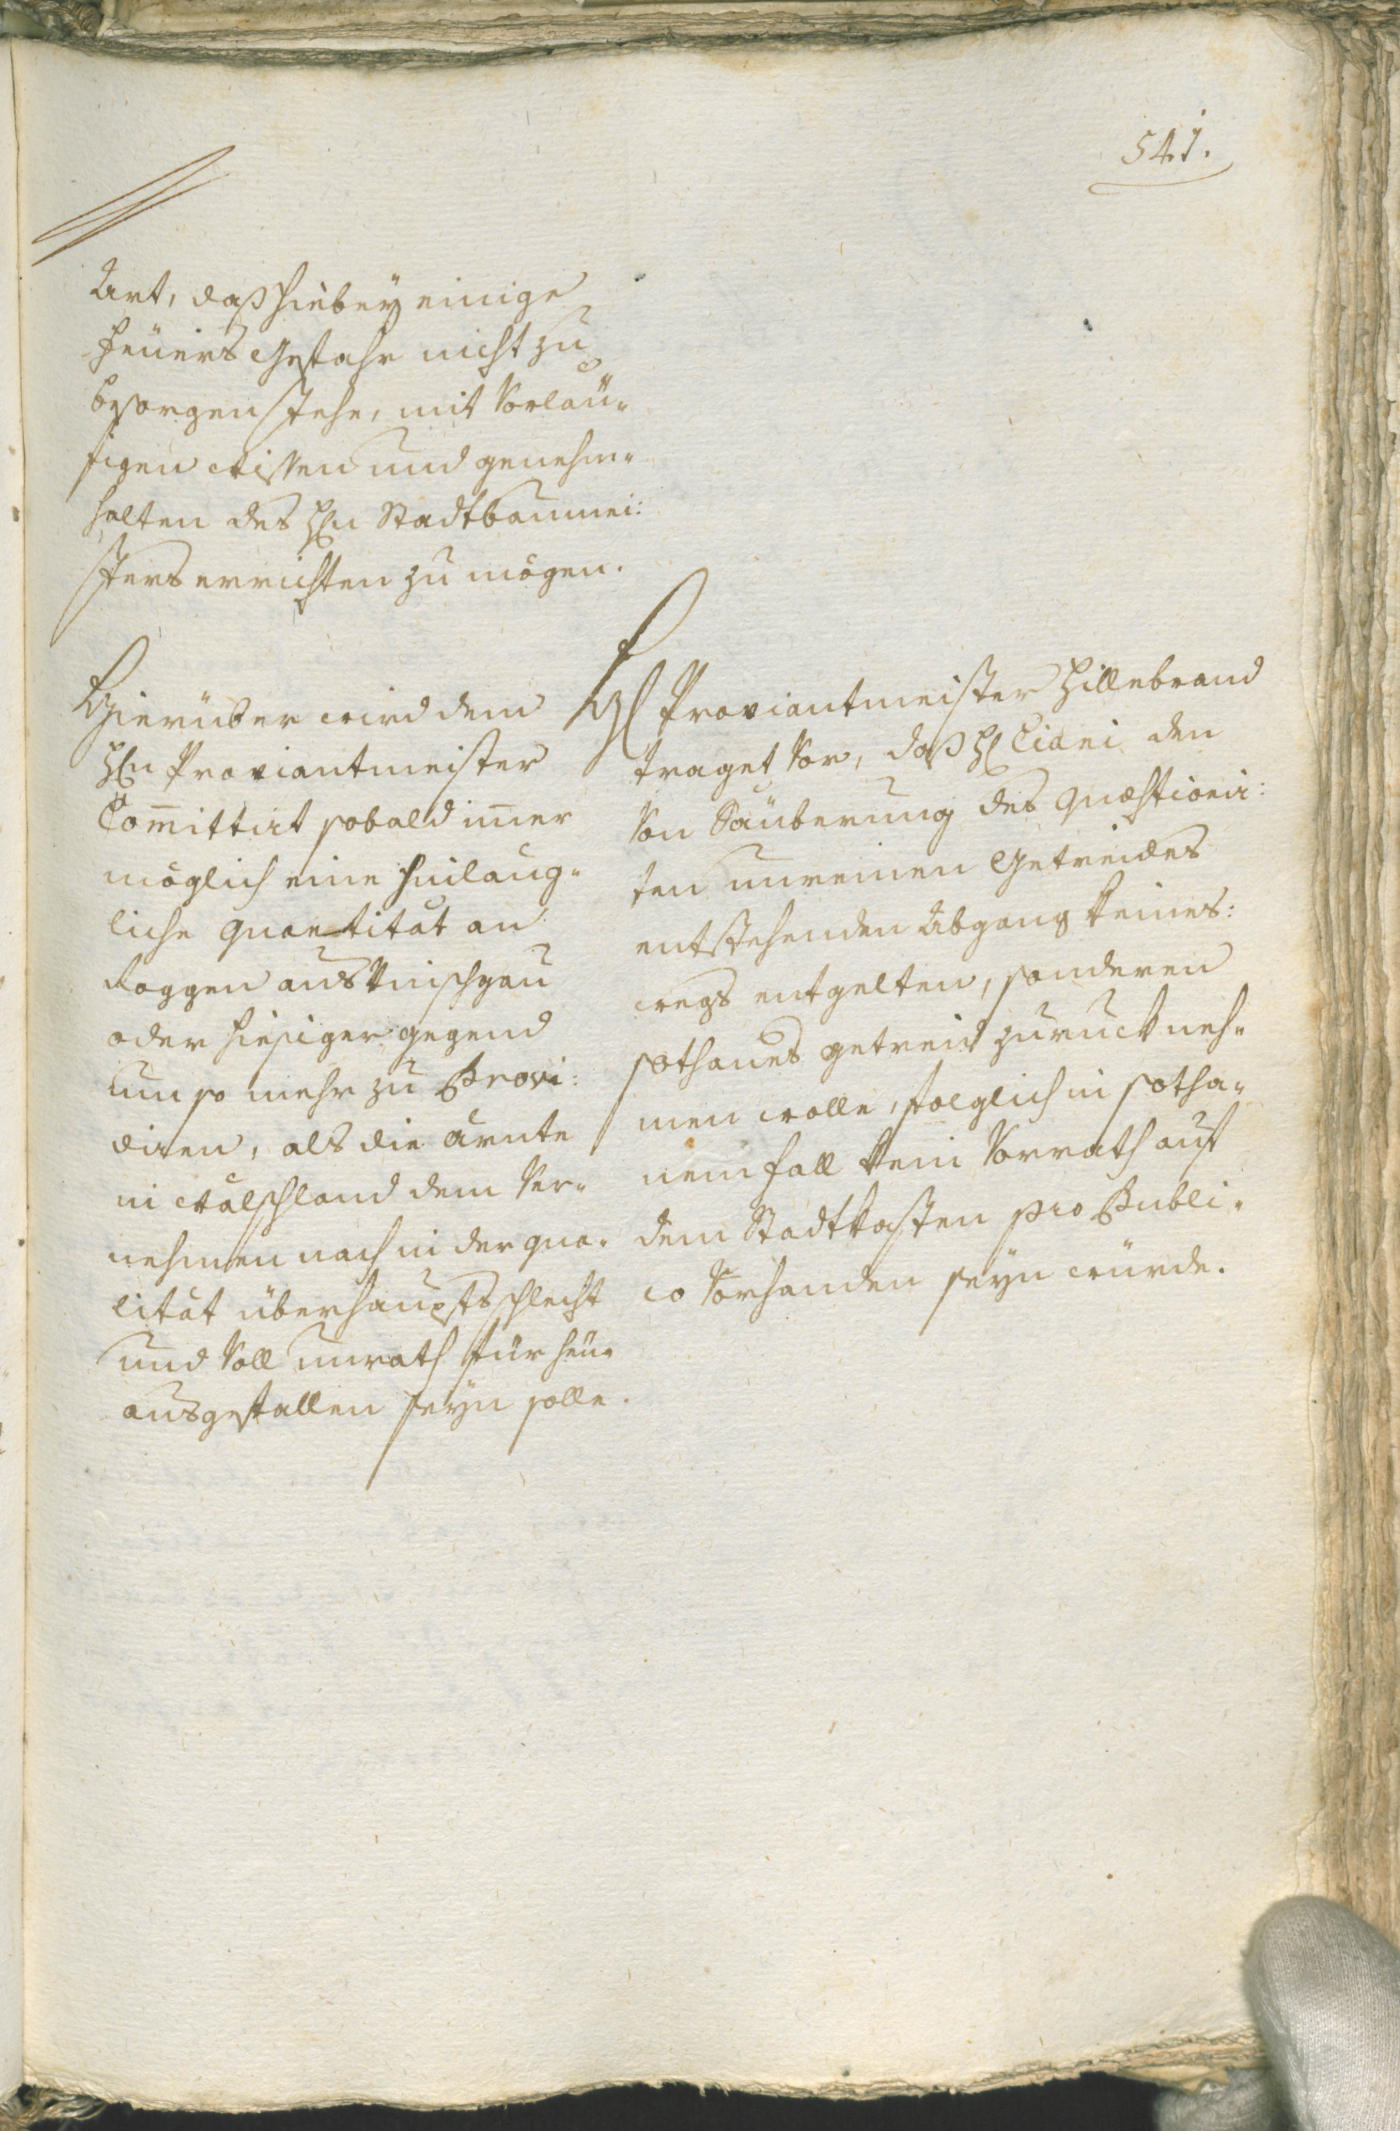 541.
Art, daß hiebey einige
feüers Gefahr nicht zu
besorgen stehe, mit Vorläu-
figen Wissen und genehm-
halten des Hn Stadtbaumei:
sters errichten zu mögen.
Hierüber wird dem
Hn Proviantmeister
Com̅ittirt sobald im̅er
möglich eine hinläng-
liche Quantität an
Roggen aus Vinschgau
oder hiesiger gegend
um so mehr zu Provi:
diren, als die ärnte
in Wälschland dem Ver-
nehmen nach in der qua-
lität überhaupts schlecht
und Voll unrath für heür
ausgefallen seyn solle.
H Proviantmeister Hillebrand
traget Vor, daß H Ciani den
Von Säüberung des Quæstionir:
ten unreinen Getreides
entstehenden Abgang keines:
wegs entgelten, sonderen
sothanes getreid zuruck neh-
men wolle, folglich in sotha-
nem fall kein Vorrath auf
dem Stadtkasten pro Publi-
co Vorhanden seyn würde.